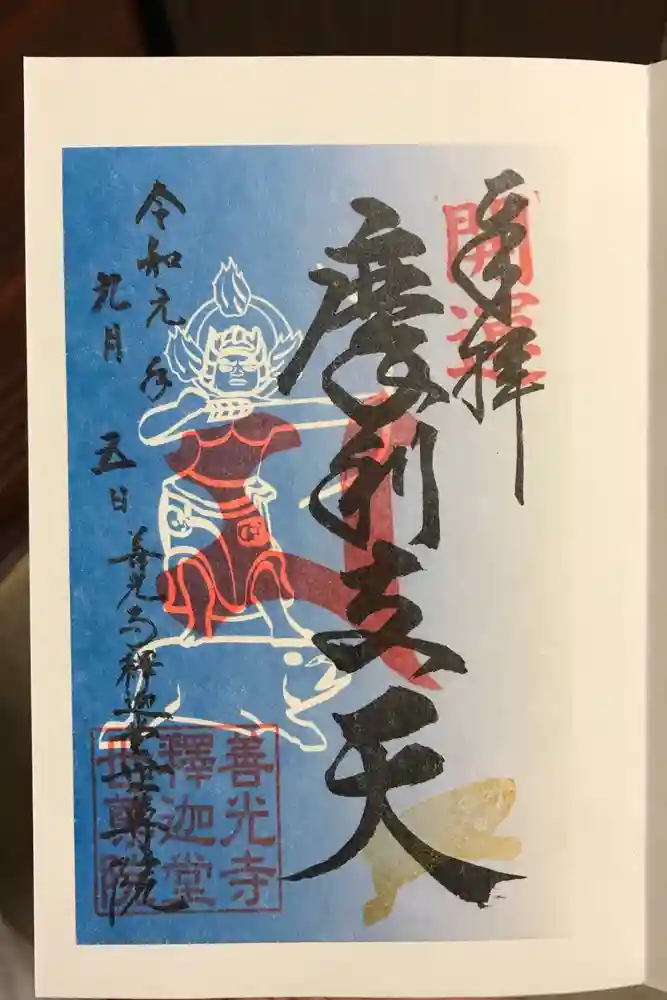 開運
奉拝
摩利支天
令和元年
九月五日
善光寺釋迦堂世尊院
善光寺
釋迦堂
世尊院